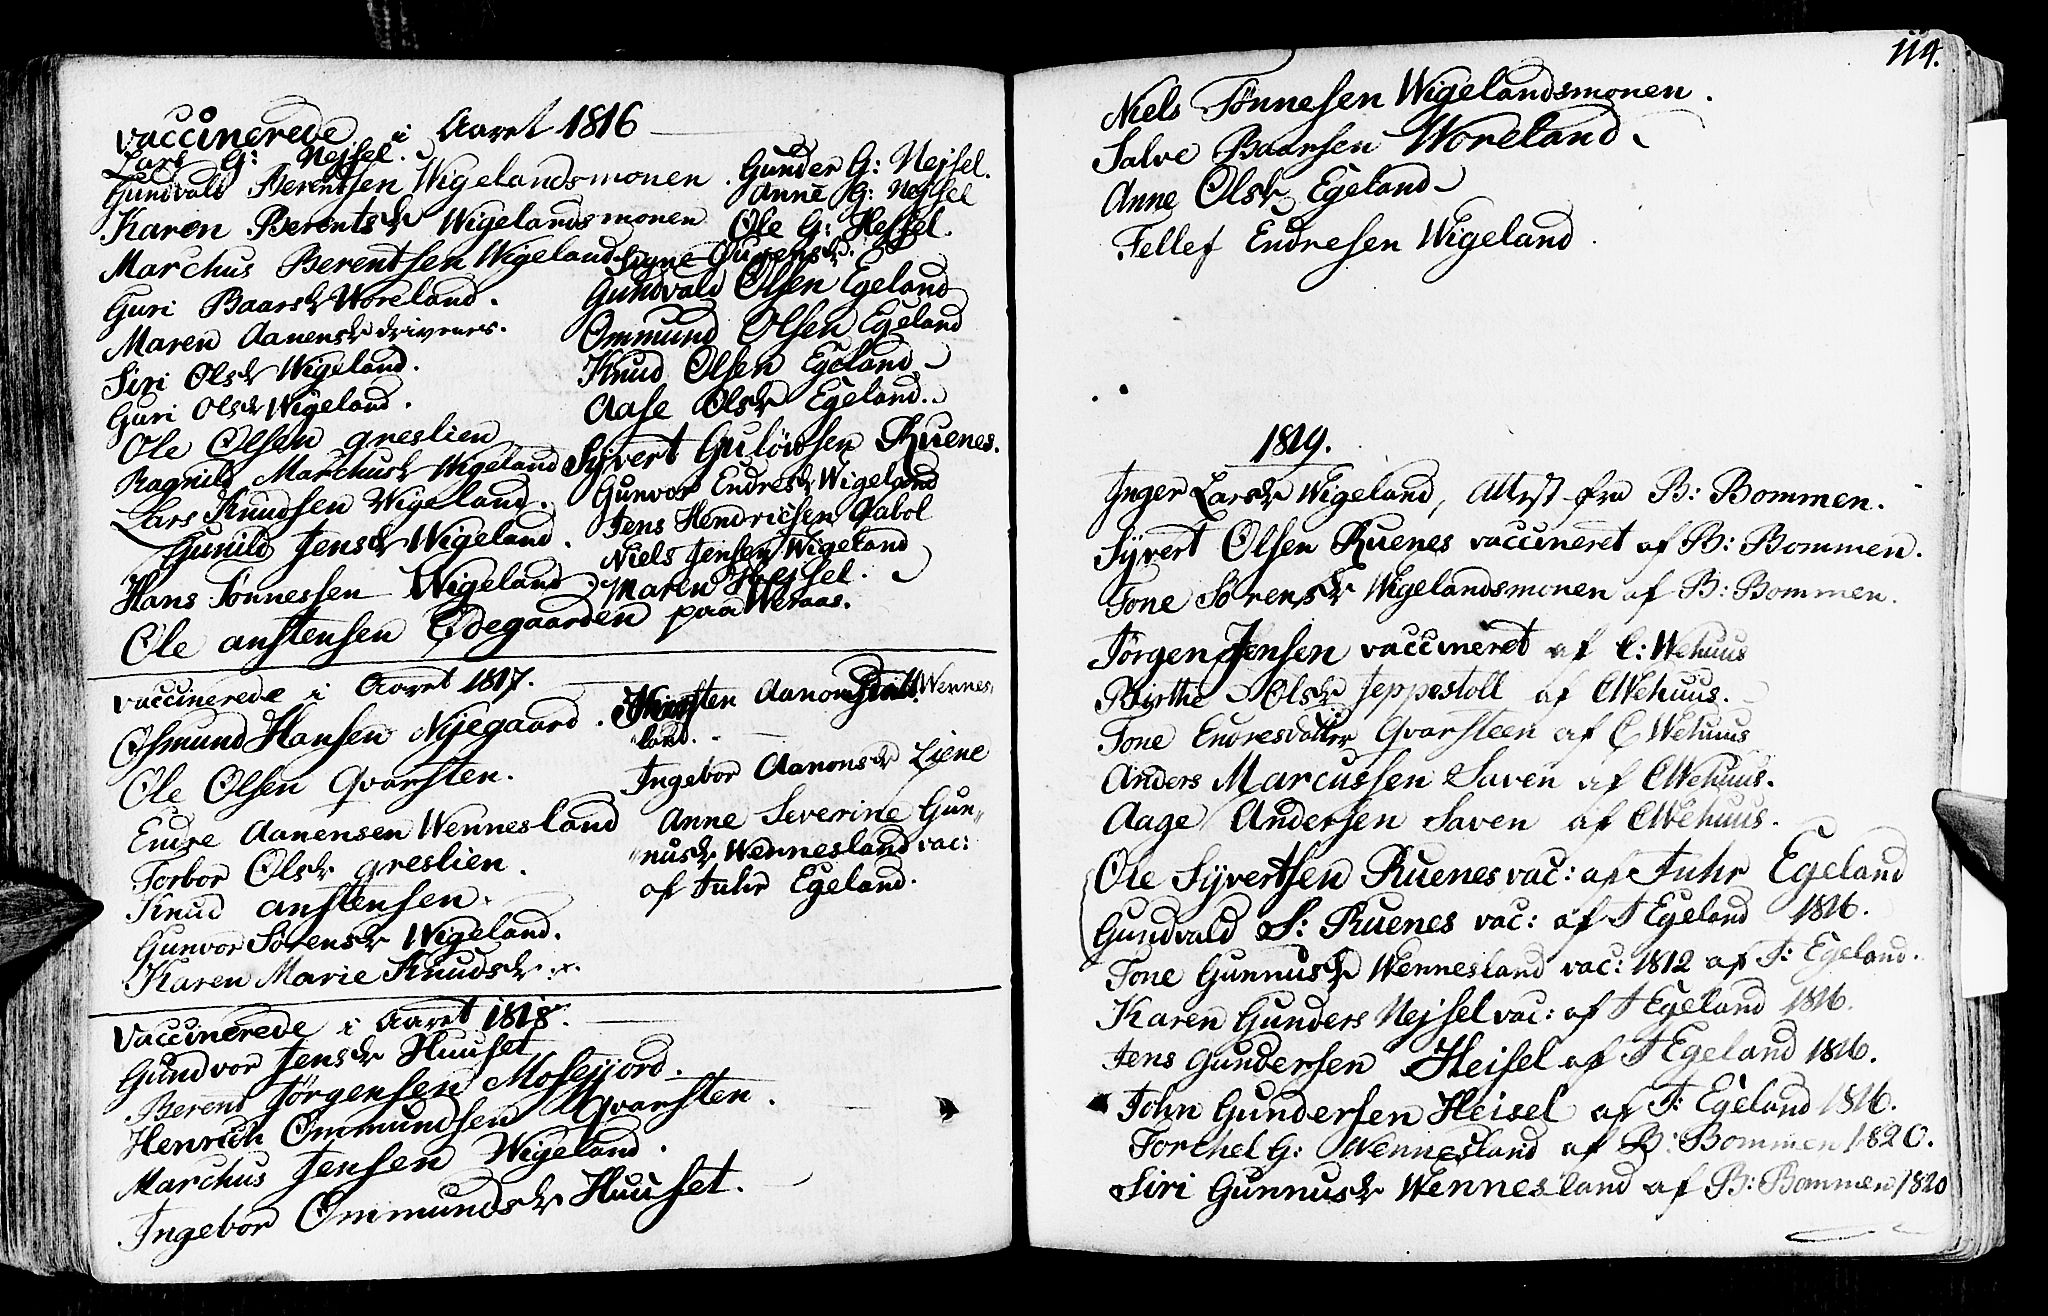 vaccinerede i Aaret 1816
Lars G: Nejsel.
Gundvald Berentsen Wigelandsmonen
Karen Berentsdr Wigelandsmonen
Marchus Berentsen Wigeland
Guri Baarsdr Woreland.
Maren Aanensdr drivenes.
Siri Olsdr Wigeland.
Guri Olsdr Wigeland.
Ole Olsen greslien
Ragnild Marchusdr Wigeland
Lars Knudsen Wigeland.
Gunild Jensdr Wigeland.
Hans Tønnessen Wigeland.
Ole anstensen Ødegaarden paa Weraas.
Gunder G: Nejsel.
Anne G: Nejsel
Ole G: Hejsel.
Signe
Gundvald Olsen Egeland
Ommund Olsen Egeland
Knud Olsen Egeland
Aase Olsdr Egeland.
Syvert Guløvsen Ruenes.
Gunvor Endresdr Wigeland
Jens Hendrichsen Qabol
Niels Jensen Wigeland
Maren Hejsel.
vaccinerede i Aaret 1817.
Osmund Hansen Nyegaard.
Ole Olsen Qvarsten.
Endre Aanensen Wennesland
Torbor Olsdr greslien.
Knud anstensen.
Gunvor Sørensdr Wigeland.
Karen Marie Knudsdr
Kirsten Aanonsdr Wennes
land.
Ingebor Aanonsdr Liene
Anne Severine Gun„
„nusdr Wennesland vac:
af Tuhr Egeland.
Vaccinerede i Aaret 1818.
Gundvor Jensdr Huuset
Berent Jørgensen Mosejord.
Henrich Ommundsen Qvarsten.
Marchus Jensen Wigeland.
Ingebor Ommundsdr Huuset.
114.
Niels Tønnesen Wigelandsmonen.
Salve Baarsen Woreland
Anne Olsdr Egeland
Tellef Endresen Wigeland.
1819.
Inger Larsdr Wigeland, Attest fra B: Bommen.
Syvert Olsen Ruenes vaccineret af B: Bommen.
Tone Sørensdr Wigelandsmonen af B: Bommen.
Jørgen Jensen vaccineret af C: Wehuus
Birthe Olsdr Jeppestoll af C Wehuus.
Tone Endresdatter Qvarsteen af C Wehuus
Anders Marcussen Saven af C Wehuus.
Aage Andersen Saven af C Wehuus.
Ole Syvertsen Ruenes vac: af Tuhr Egeland
Gundvald S: Ruenes vac: af T Egeland 1816.
Tone Gunnusdr Wennesland vac: 1812 af T: Egeland.
Karen Gunders Nejsel vac: af T Egeland 1816.
Jens Gundersen Heisel af T Egeland 1816.
John Gundersen Heisel af T: Egeland 1816.
Torchel G: Wennesland af B: Bommen 1820.
Siri Gunnusdr Wennesland af B: Bommen 1820